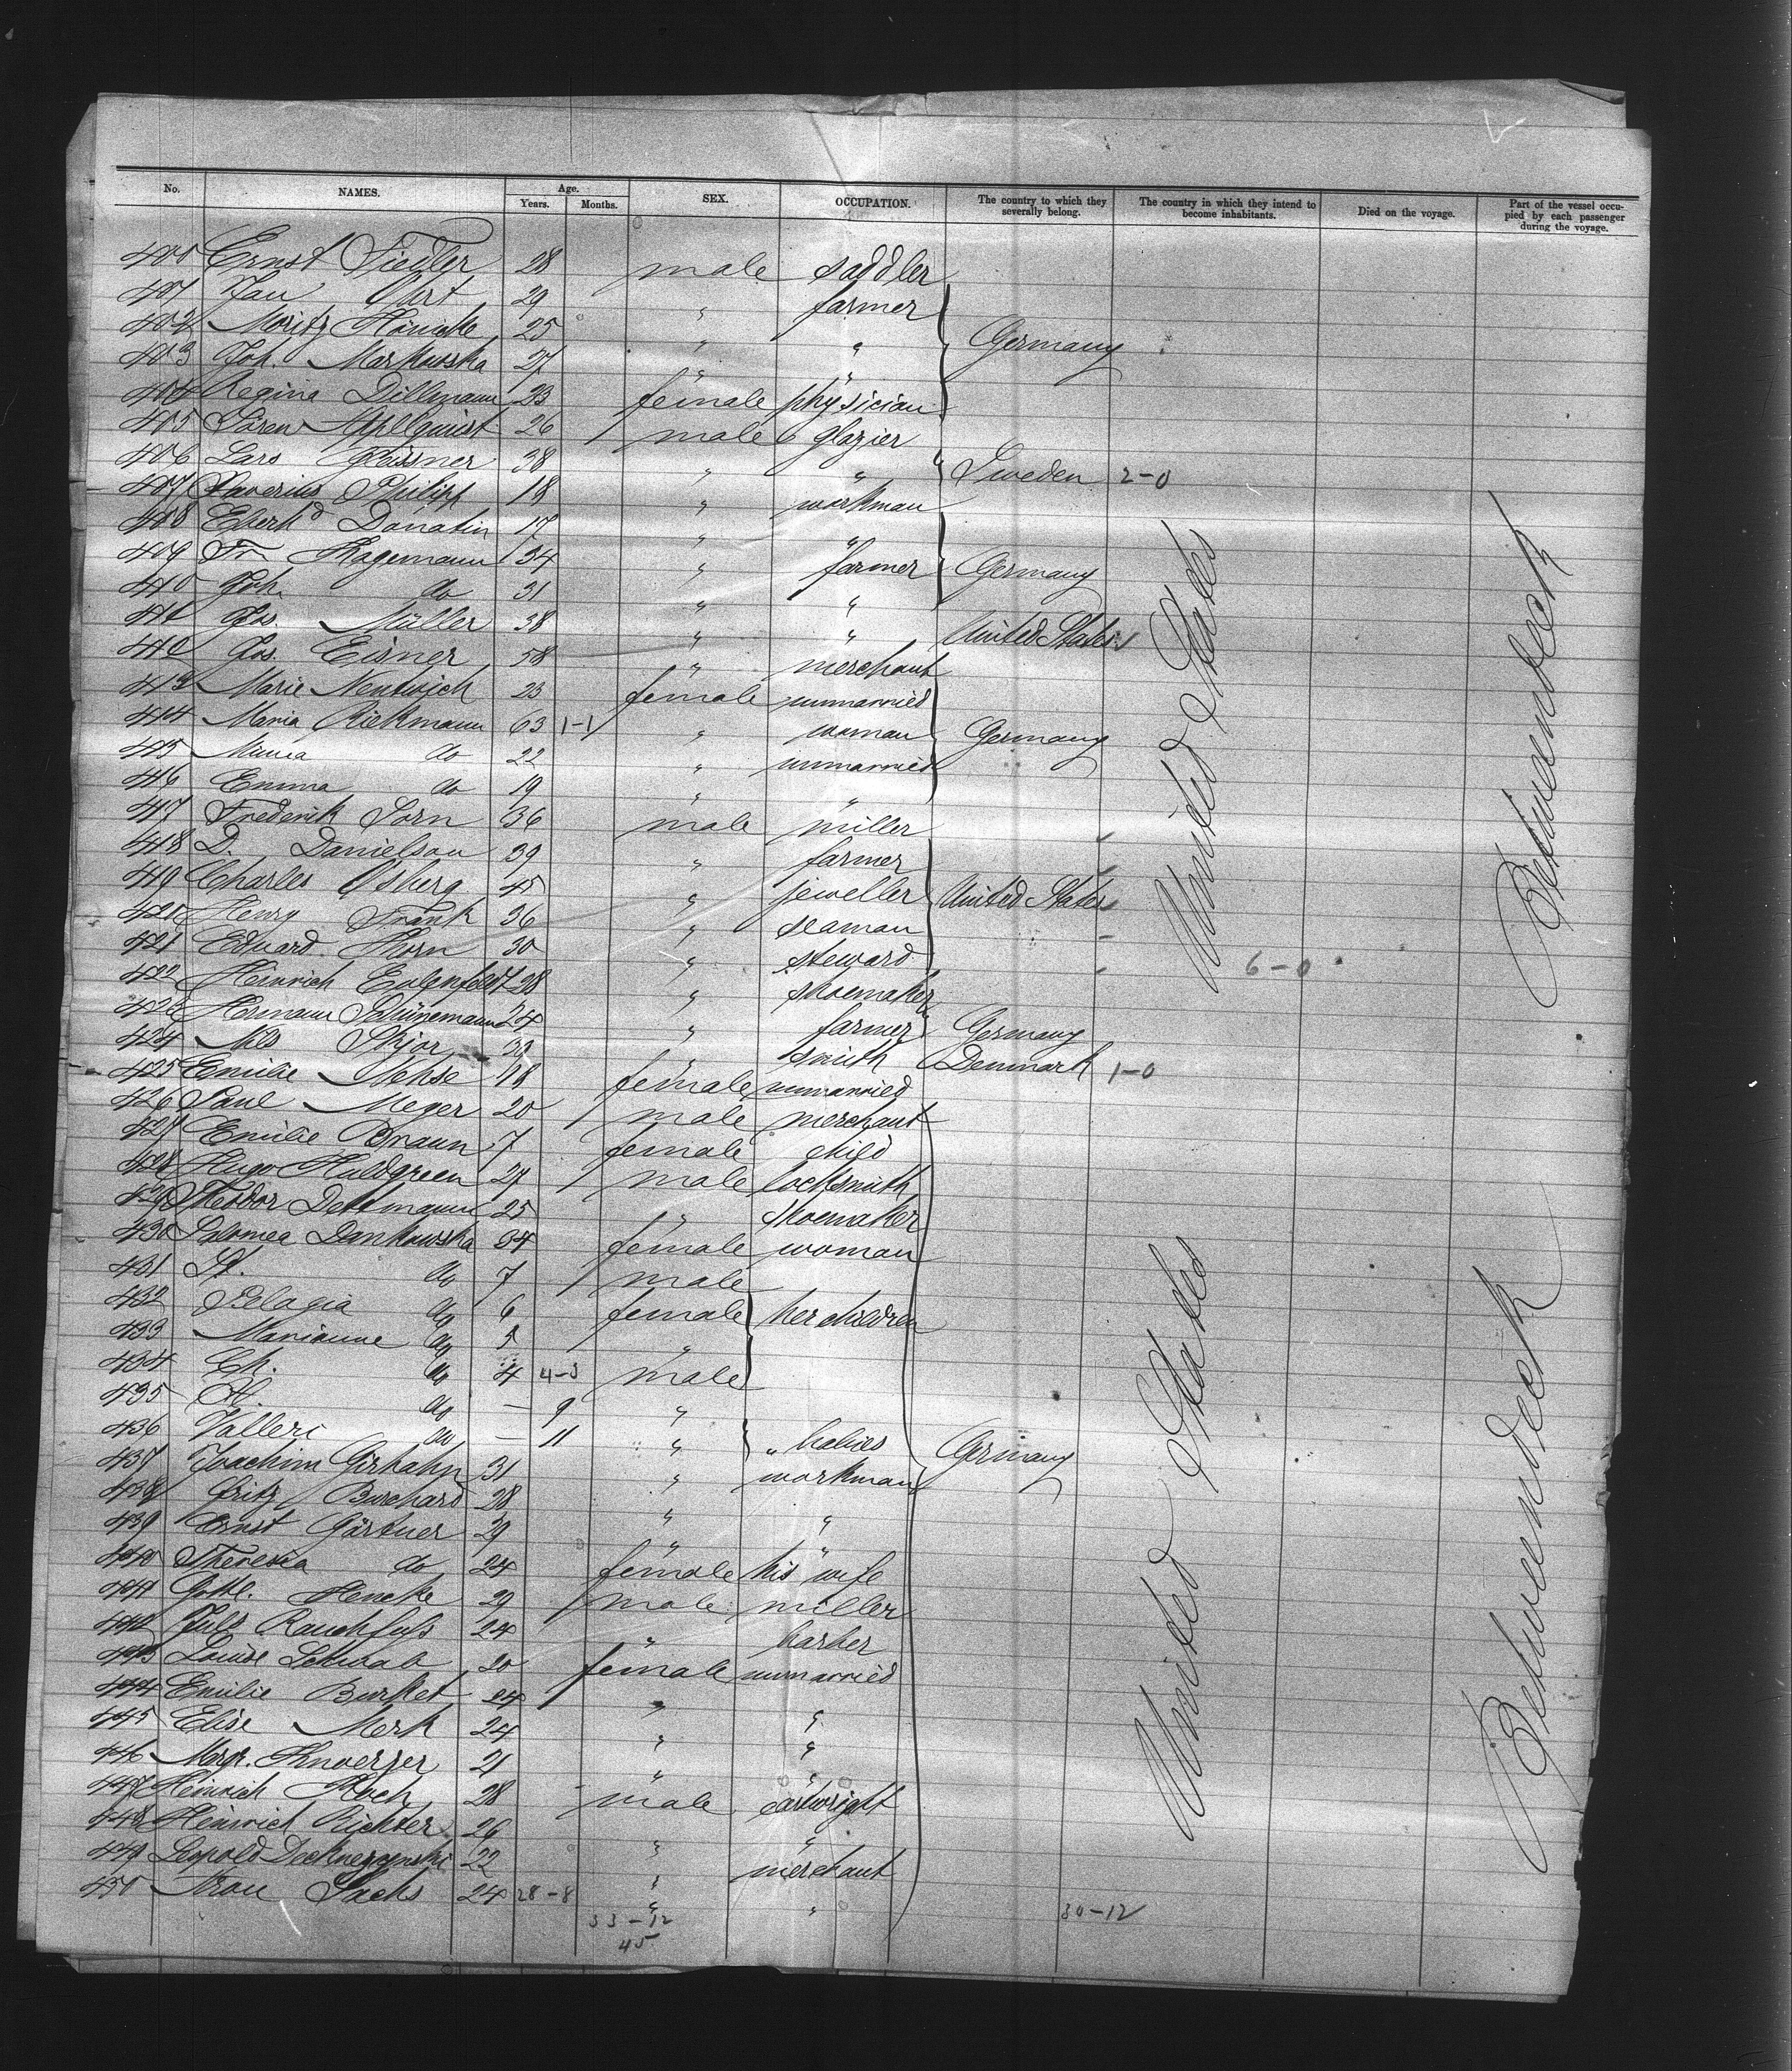 No. NAMES. Age. Years. Months. SEX. OCCUPATION. The country to which they severally belong. The country in which they intend to become inhabitants. Died on the voyage. Part of the vessel occupied by each passenger during the voyage.
400 Ernst Fiedler 28 male saddler
401 Jan 29 " farmer
402 Moritz 25 " " Germany
403 Joh. Markowska 27 " "
404 Regina Dillmann 23 female physician
405 Sören Applquist 26 male glazier
406 Lars 38 " " Sweden 2-0
407 Xaverius Philipp 18 " workman
408 Eberhd Donatin 17 " "
409 Fr. Hagemann 34 " farmer Germany
410 Joh. do 31 " "
411 Müller 38 " " United States
412 Jos. Eisner 58 " merchant
413 Marie Nentwich 23 female unmarried
414 Maria Riekmann 63 1-1 " woman Germany
415 Minna do 22 " unmarried
416 Emma do 19 " "
417 Frederik Sorn 36 male miller
418 D. Danielson 39 " farmer
419 Charles Osberg 45 " jeweller United States
420 Henry Frank 36 " seaman
421 Eduard Thorn 30 " steward 6-0
422 Heinrich Eulenfeldt 28 " shoemaker
423 Hermann Schünemann 24 " farmer Germany
424 Nls 32 " smith Denmark 1-0
425 Emilie 18 female unmarried
426 Paul Meyer 20 male merchant
427 Emilie Braun 7 female child
428 Hugo Huldgreen 27 male locksmith
429 Theodor Dettmann 25 " shoemaker
430 Salomea Dankowska 34 female woman
431 St. do 7 male
432 Pelagia do 6 female her children
433 Marianne do 5 "
434 Ch. do 4 4-3 male
435 do — 9 "
436 Valleri do — 11 " " babies Germany
437 Joachim Girhahn 31 " workman
438 Fritz Burchard 28 " "
439 Ernst Gärtner 29 " "
440 Theresia do 24 female his wife
441 Gottl. Hencke 29 male miller
442 Juls Rauchfuss 24 " barber
443 Louise Schwab 20 female unmarried
444 Emilie Burket 24 " "
445 Elise Merk 24 " "
446 Margr. Knoerzer 21 " "
447 Heinrich Koch 28 male cartwright
448 Heinrich Richter 26 " "
449 Leopold 22 " merchant
450 Aron Sachs 24 28-8 " "
33-12 30-12
45
United States
United States
Betweendeck
Betweendeck